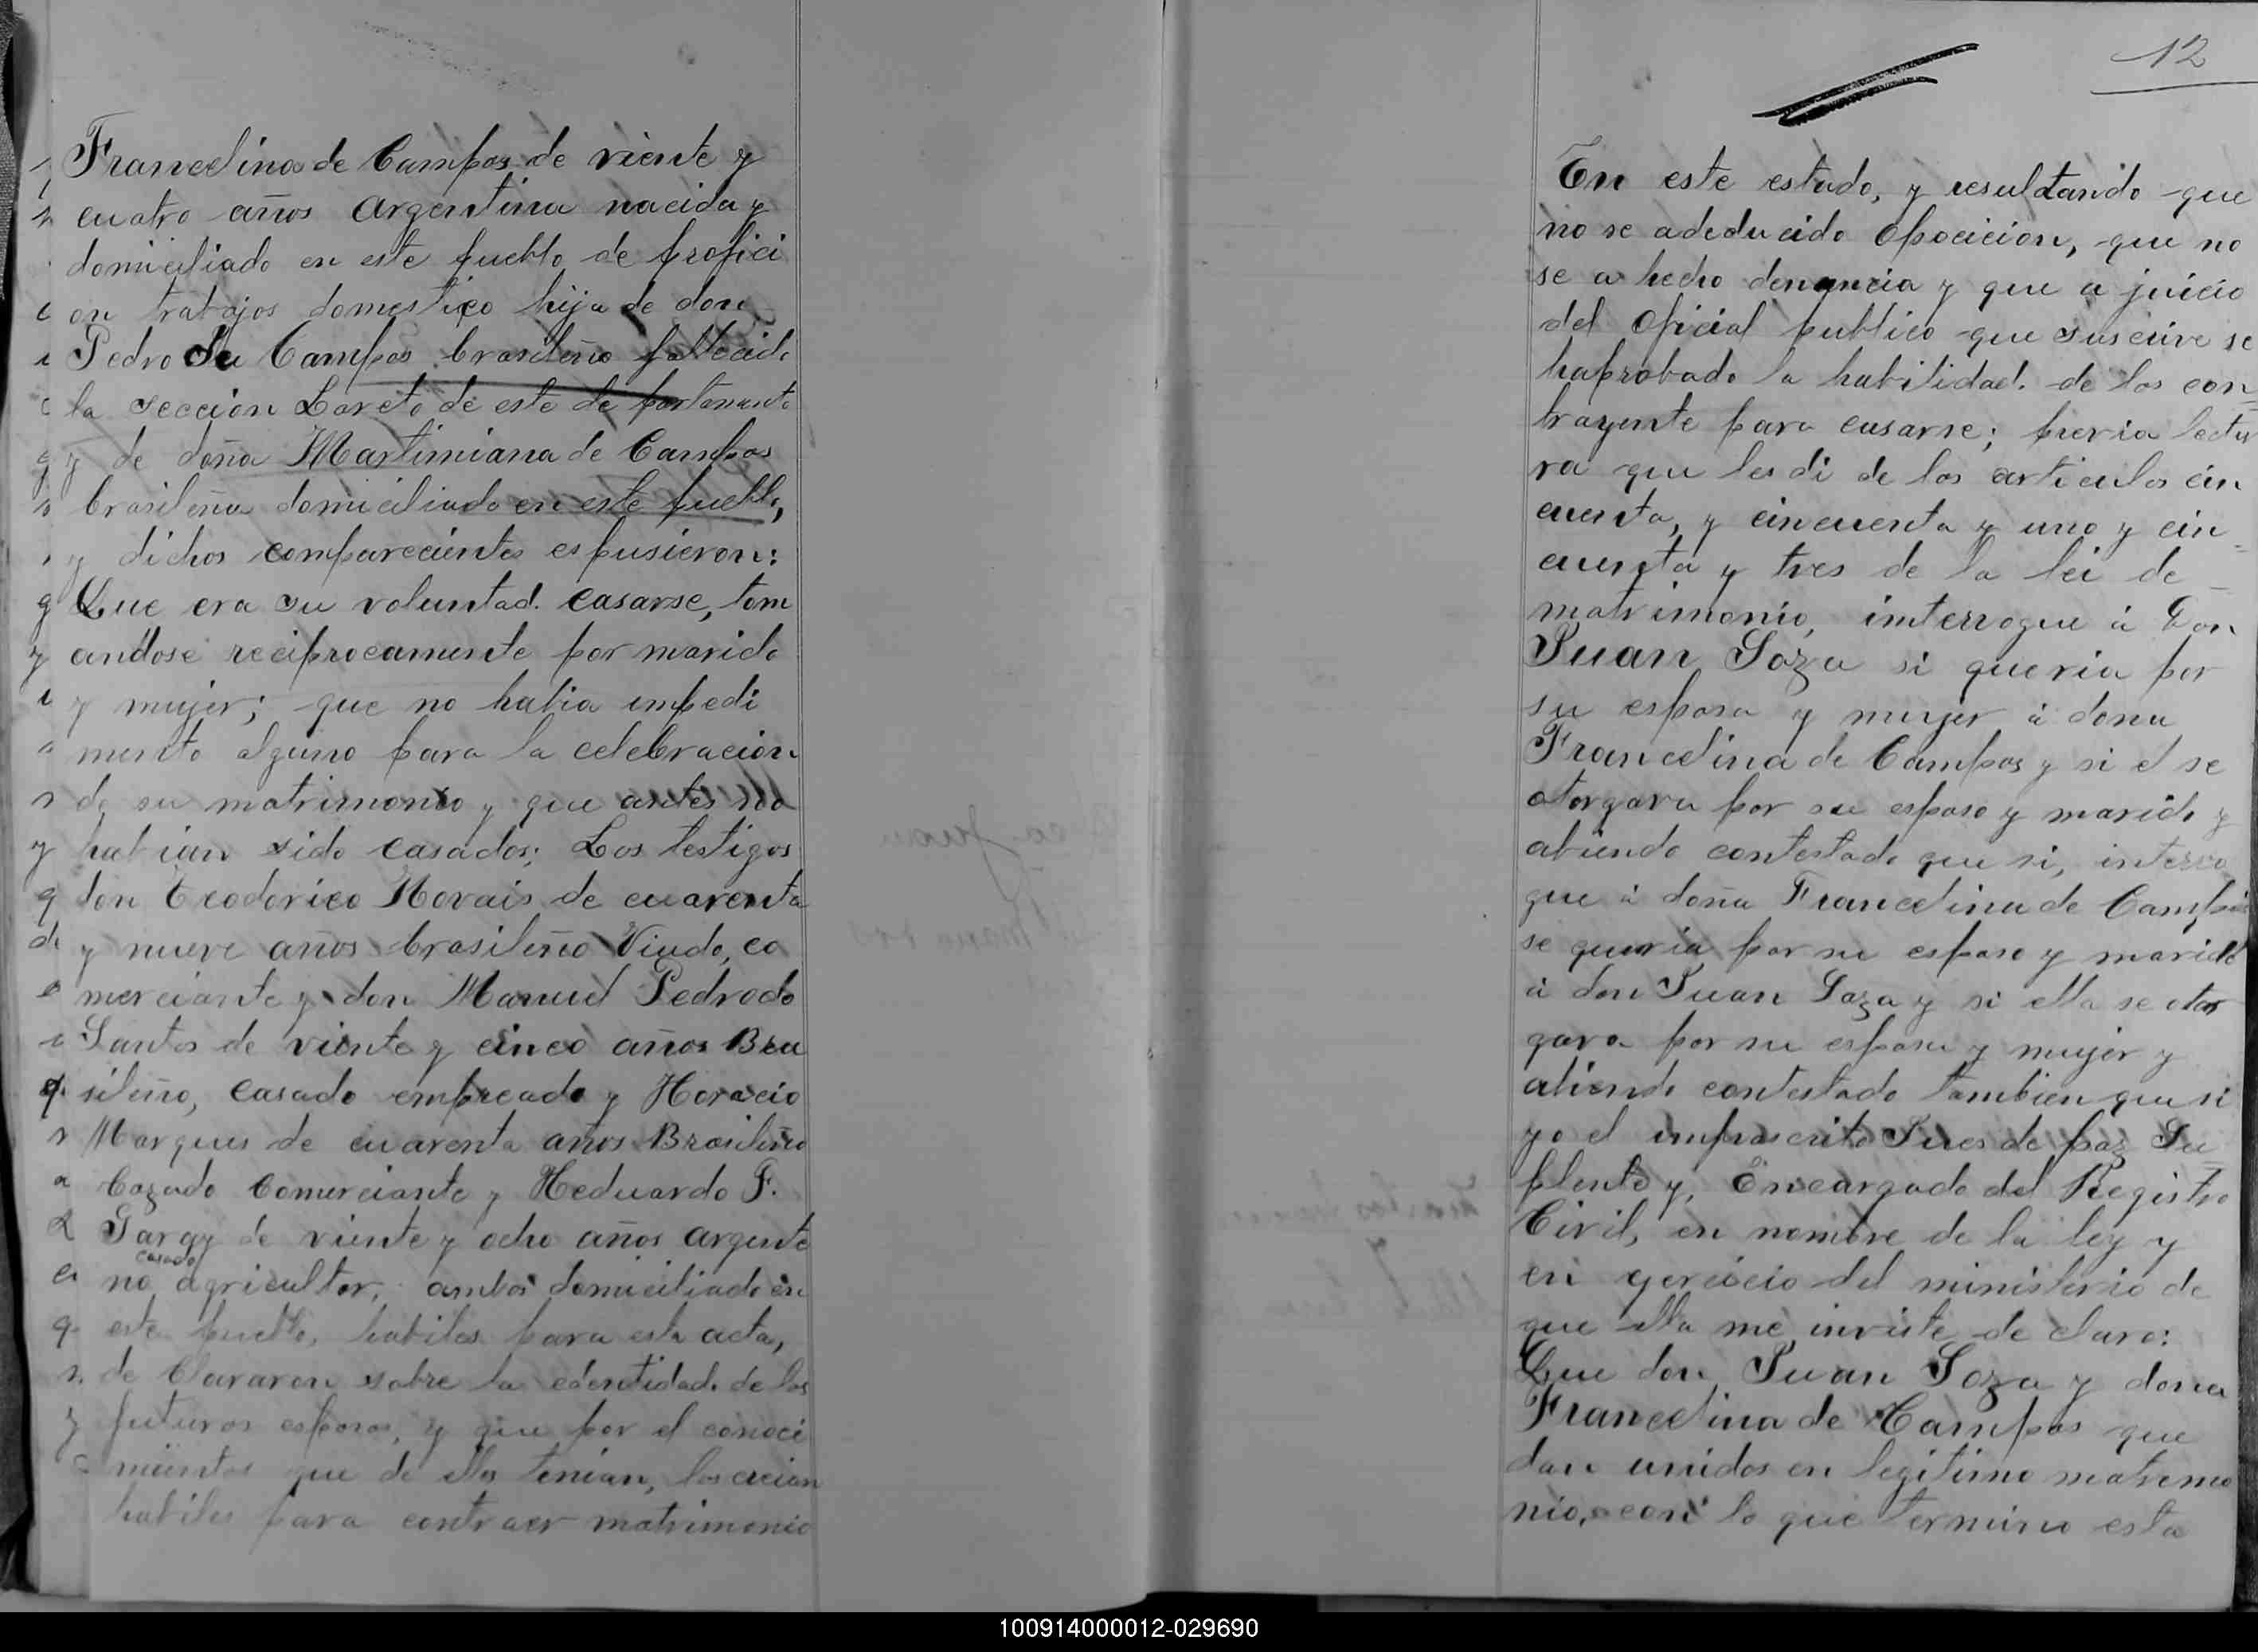 Francelina de Campos de viente y
cuatro años Argentina nacida y
domiciliado en este pueblo de profici
on trabajos domestico hija de don
Pedro Su Campos brasileño fallecido
la seccion Loreto de este de partamento
y de doña Martimiana de Campos
brasileña domiciliado en este pueblo,
y dichos comparecientes espusieron:
Que era su voluntad. casarse, tom
andose reciprocamente por marido
y mujer; que no habia impedi
mento alguno para la celebracion
de su matrimonio y que antes no
habian sido casados; Los testigos
don Teodorico Morais de cuarenta
y nueve años brasileño Viudo, co
merciante y don Manuel Pedro do
Santos de viente y cinco años Bra
sileño, casado empreado y Horacio
Marques de cuarenta años Brasileño
Cazado Comerciante y Heduardo F.
de viente y ocho años argente
casado
no agricultor, ambos domiciliado en
este pueblo, habiles para esta acta,
de Clararon sobre la edentidad. de los
futuros esposos, y que por el conoci
mientos que de ellos tenian, los creian
habiles para contraer matrimonio
12
En este estado, y resultando que
no se adeducido Opocicion, que no
se a hecho denuncia y que a juicio
del Oficial publico que suscrive se
haprobado la habilidad. de los con
trayente para casarse; previa lectu
ra que les di de los articulos cin
cuenta, y cincuenta y uno y cin=
cuenta y tres de la lei de
matrimonio, imterrogue á Don
Juan Soza si queria por
su esposa y mujer á dona
Francelina de Campos y si el se
otorgara por su esposo y marido y
abiendo contestado que si, interro
gue á doña Francelina de Campos
se queria por su esposo y marido
á don Juan Soza y si ella se otor
gara por su esposa y mujer y
abiendo contestado tambien que si
yo el imfrascrito Jues de paz Su
plente y, Encargado del Registro
Civil, en nombre de la ley y
en gercicio del ministerio de
que ella me inviste de claro:
Que don Juan Soza y dona
Francelina de Campos que
dan unidos en legitimo matremo
nio, con lo que termino esta
100914000012-029690